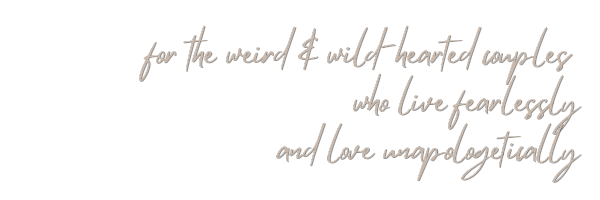 for the weird & wild-hearted couples
who live fearlessly
and love unapologetically